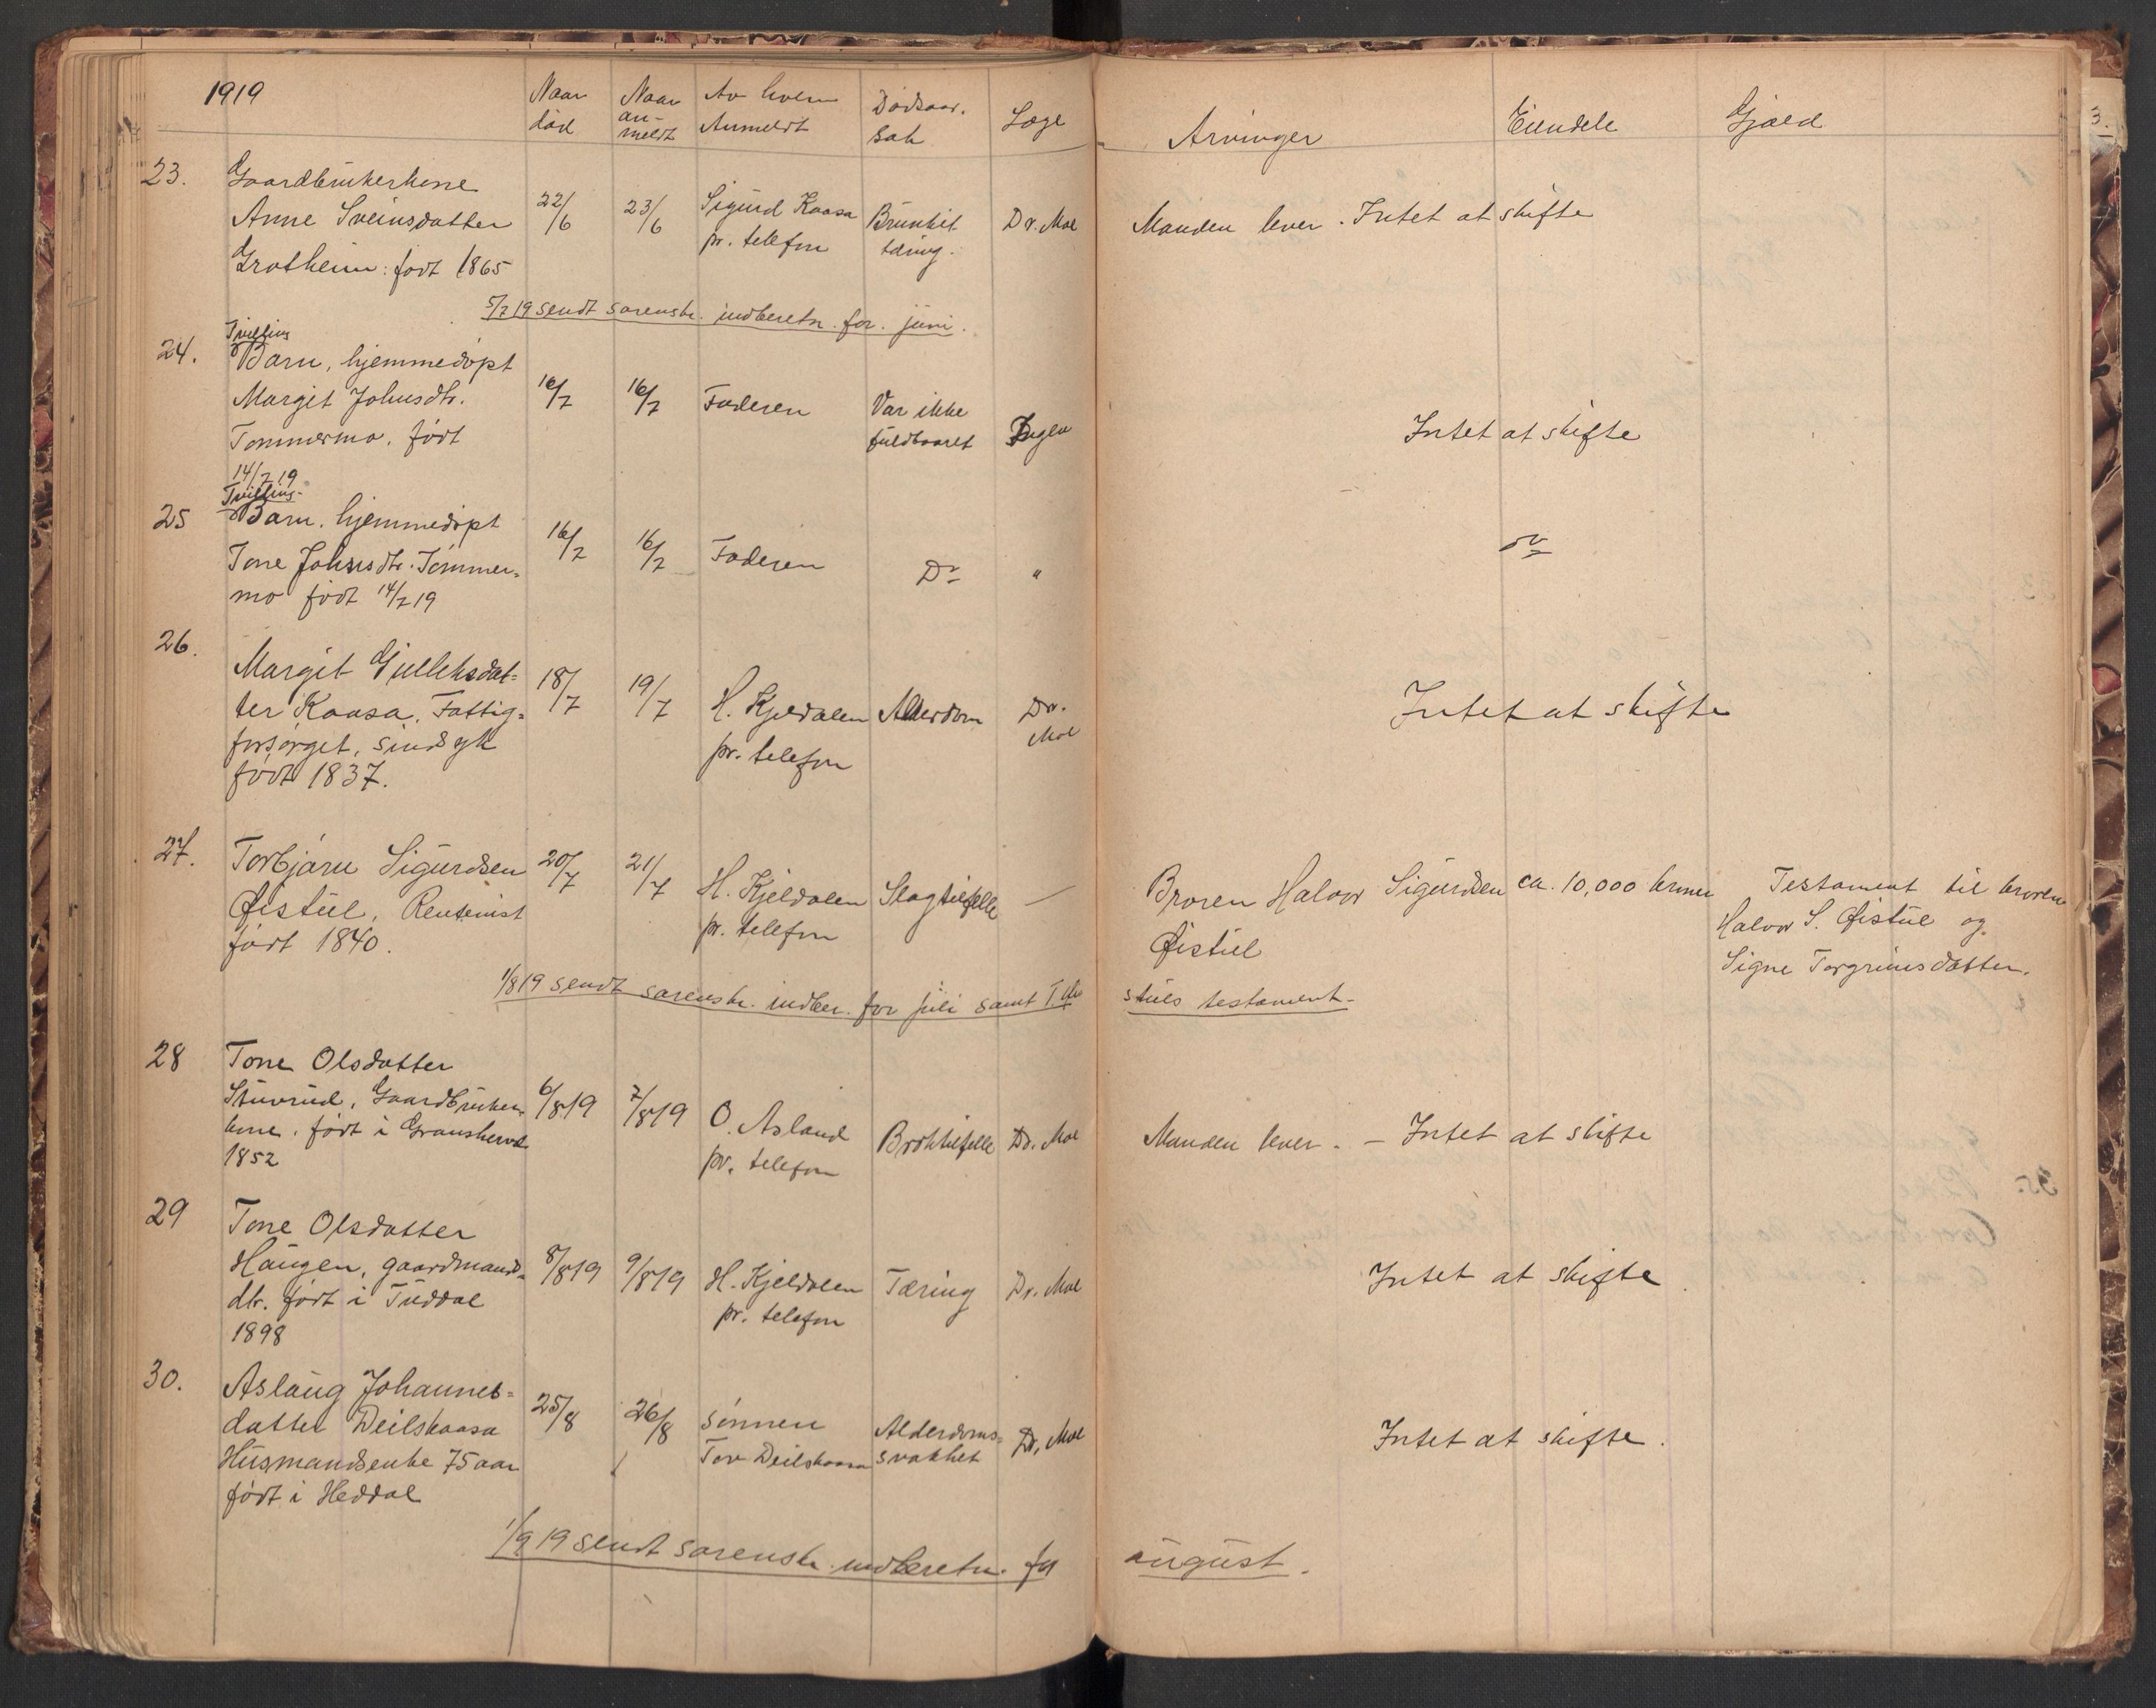 1919
Naar død
Naar an-meldt
Av hvem Anmeldt
Dødsaar.sak
Læge
Arvinger
Eiendele
Gjæld
23.
Gaardbrukerkone
Anne Sveinsdatter
Grotheim: født 1865
22/6
23/6
Sigurd Kaasa
pr. telefon
Brunkit
tæring.
Dr. Moe
Manden lever. Intet at skifte
5/7 19 sendt sorenskr. indberetn. for juni.
24.
Tvilling
Barn, hjemmedøpt
Margit Johnsdtr.
Tømmermo, født
14/7 19
16/7
16/7
Faderen
Var ikke
fuldbaaret
Ingen
Intet at skifte
25
Tvilling-
Barn, hjemmedøpt
Tone Johnsdtr. Tømmer-
mo født 14/7 19
16/7
16/7
Faderen
Do
"
do
26.
Margit Gulleksdat-
ter Kaasa. Fattig-
forsørget, sindsyk
født 1837.
18/7
19/7
H. Kjeldalen
pr. telefon
Alderdom
Dr.
Moe
Intet at skifte
27.
Torbjørn Sigurdsen
Øistul, Rentenist
født 1840.
20/7
21/7
H. Kjeldalen
pr. telefon
Slagtilfelle
—
Broren Halvor Sigurdsen
Øistul
ca. 10,000 kroner
Testament til broren
Halvor S. Øistul og
Signe Torgrimsdatter.
1/8 19 sendt sorenskr. indber. for juli samt T. Øi
stuls testament-
28
Tone Olsdatter
Stuvrud, Gaardbruker-
kone. født i Gransherad
1852
6/8 19
7/8 19
O. Aasland
pr. telefon
Broktilfelle
Dr. Moe
Manden lever. - Intet at skifte
29
Tone Olsdatter
Haugen, gaardmands-
dtr. født i Tuddal
1898
8/8 19
9/8 19
H. Kjeldalen
pr. telefon
Tæring
Dr. Moe
Intet at skifte
30.
Aslaug Johannes-
datter Deilskaasa
Husmandsenke 75 aar
født i Heddal
25/8
26/8
Sønnen
Tov Deilskaasa
Alderdoms-
svakhet
Dr. Moe
Intet at skifte.
1/9 19 sendt sorenskr. indberetn. for
august.